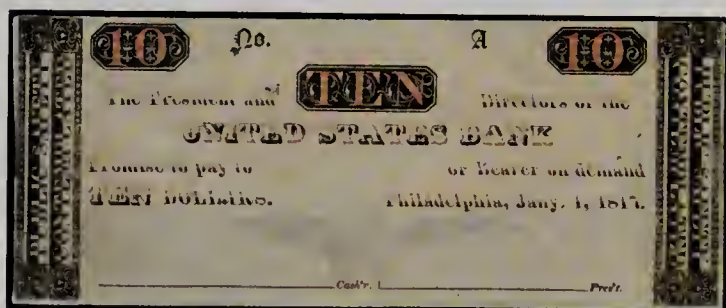 10 No. A 10
The President and TEN Directors of the
UNITED STATES BANK
Promise to pay to or Bearer on demand
TEN DOLLARS. Philadelphia, Jany. 1, 1817.
Cash'r. Pres't.
PUBLIC SAFETY